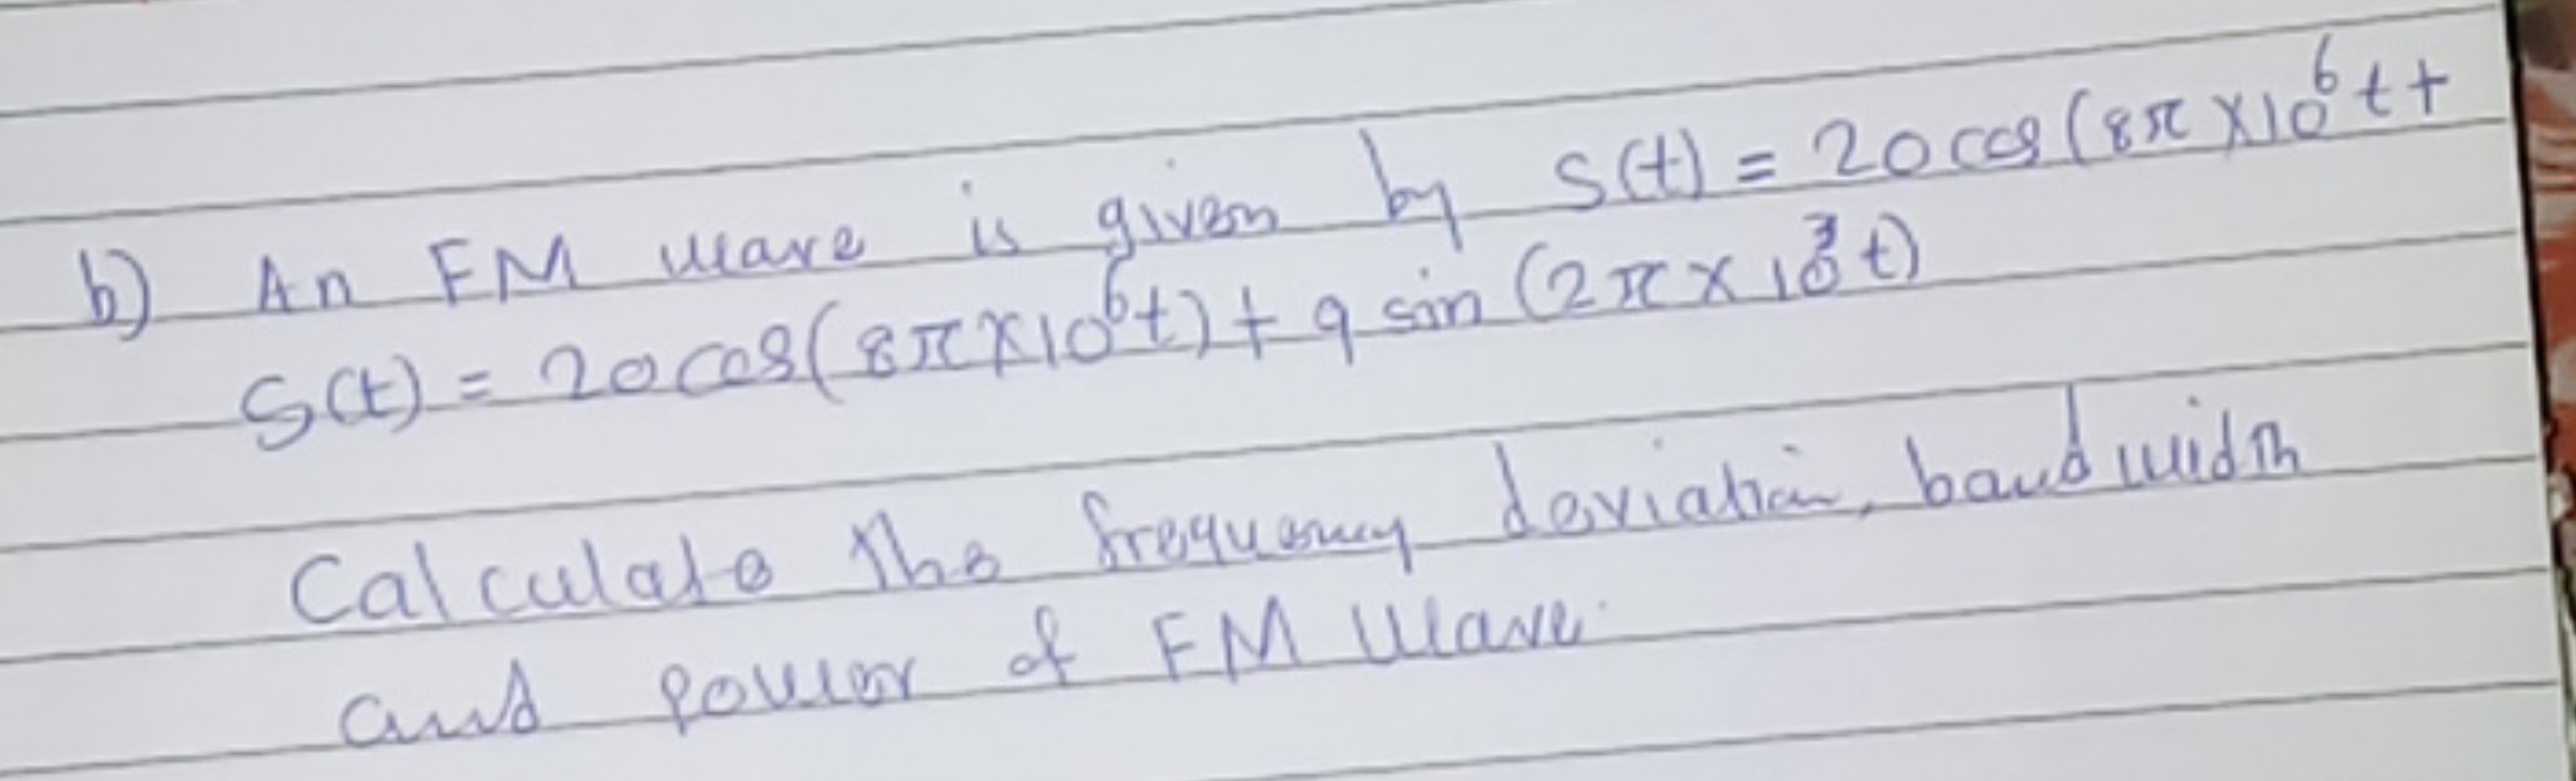 b) An FM wave is given by S(t) = 20 cos (8π×10⁶t +
S(t) = 20 cos(8π×10⁶t) + 9 sin (2π×10³t)
Calculate the frequency deviation, bandwidth
and power of FM Wave.